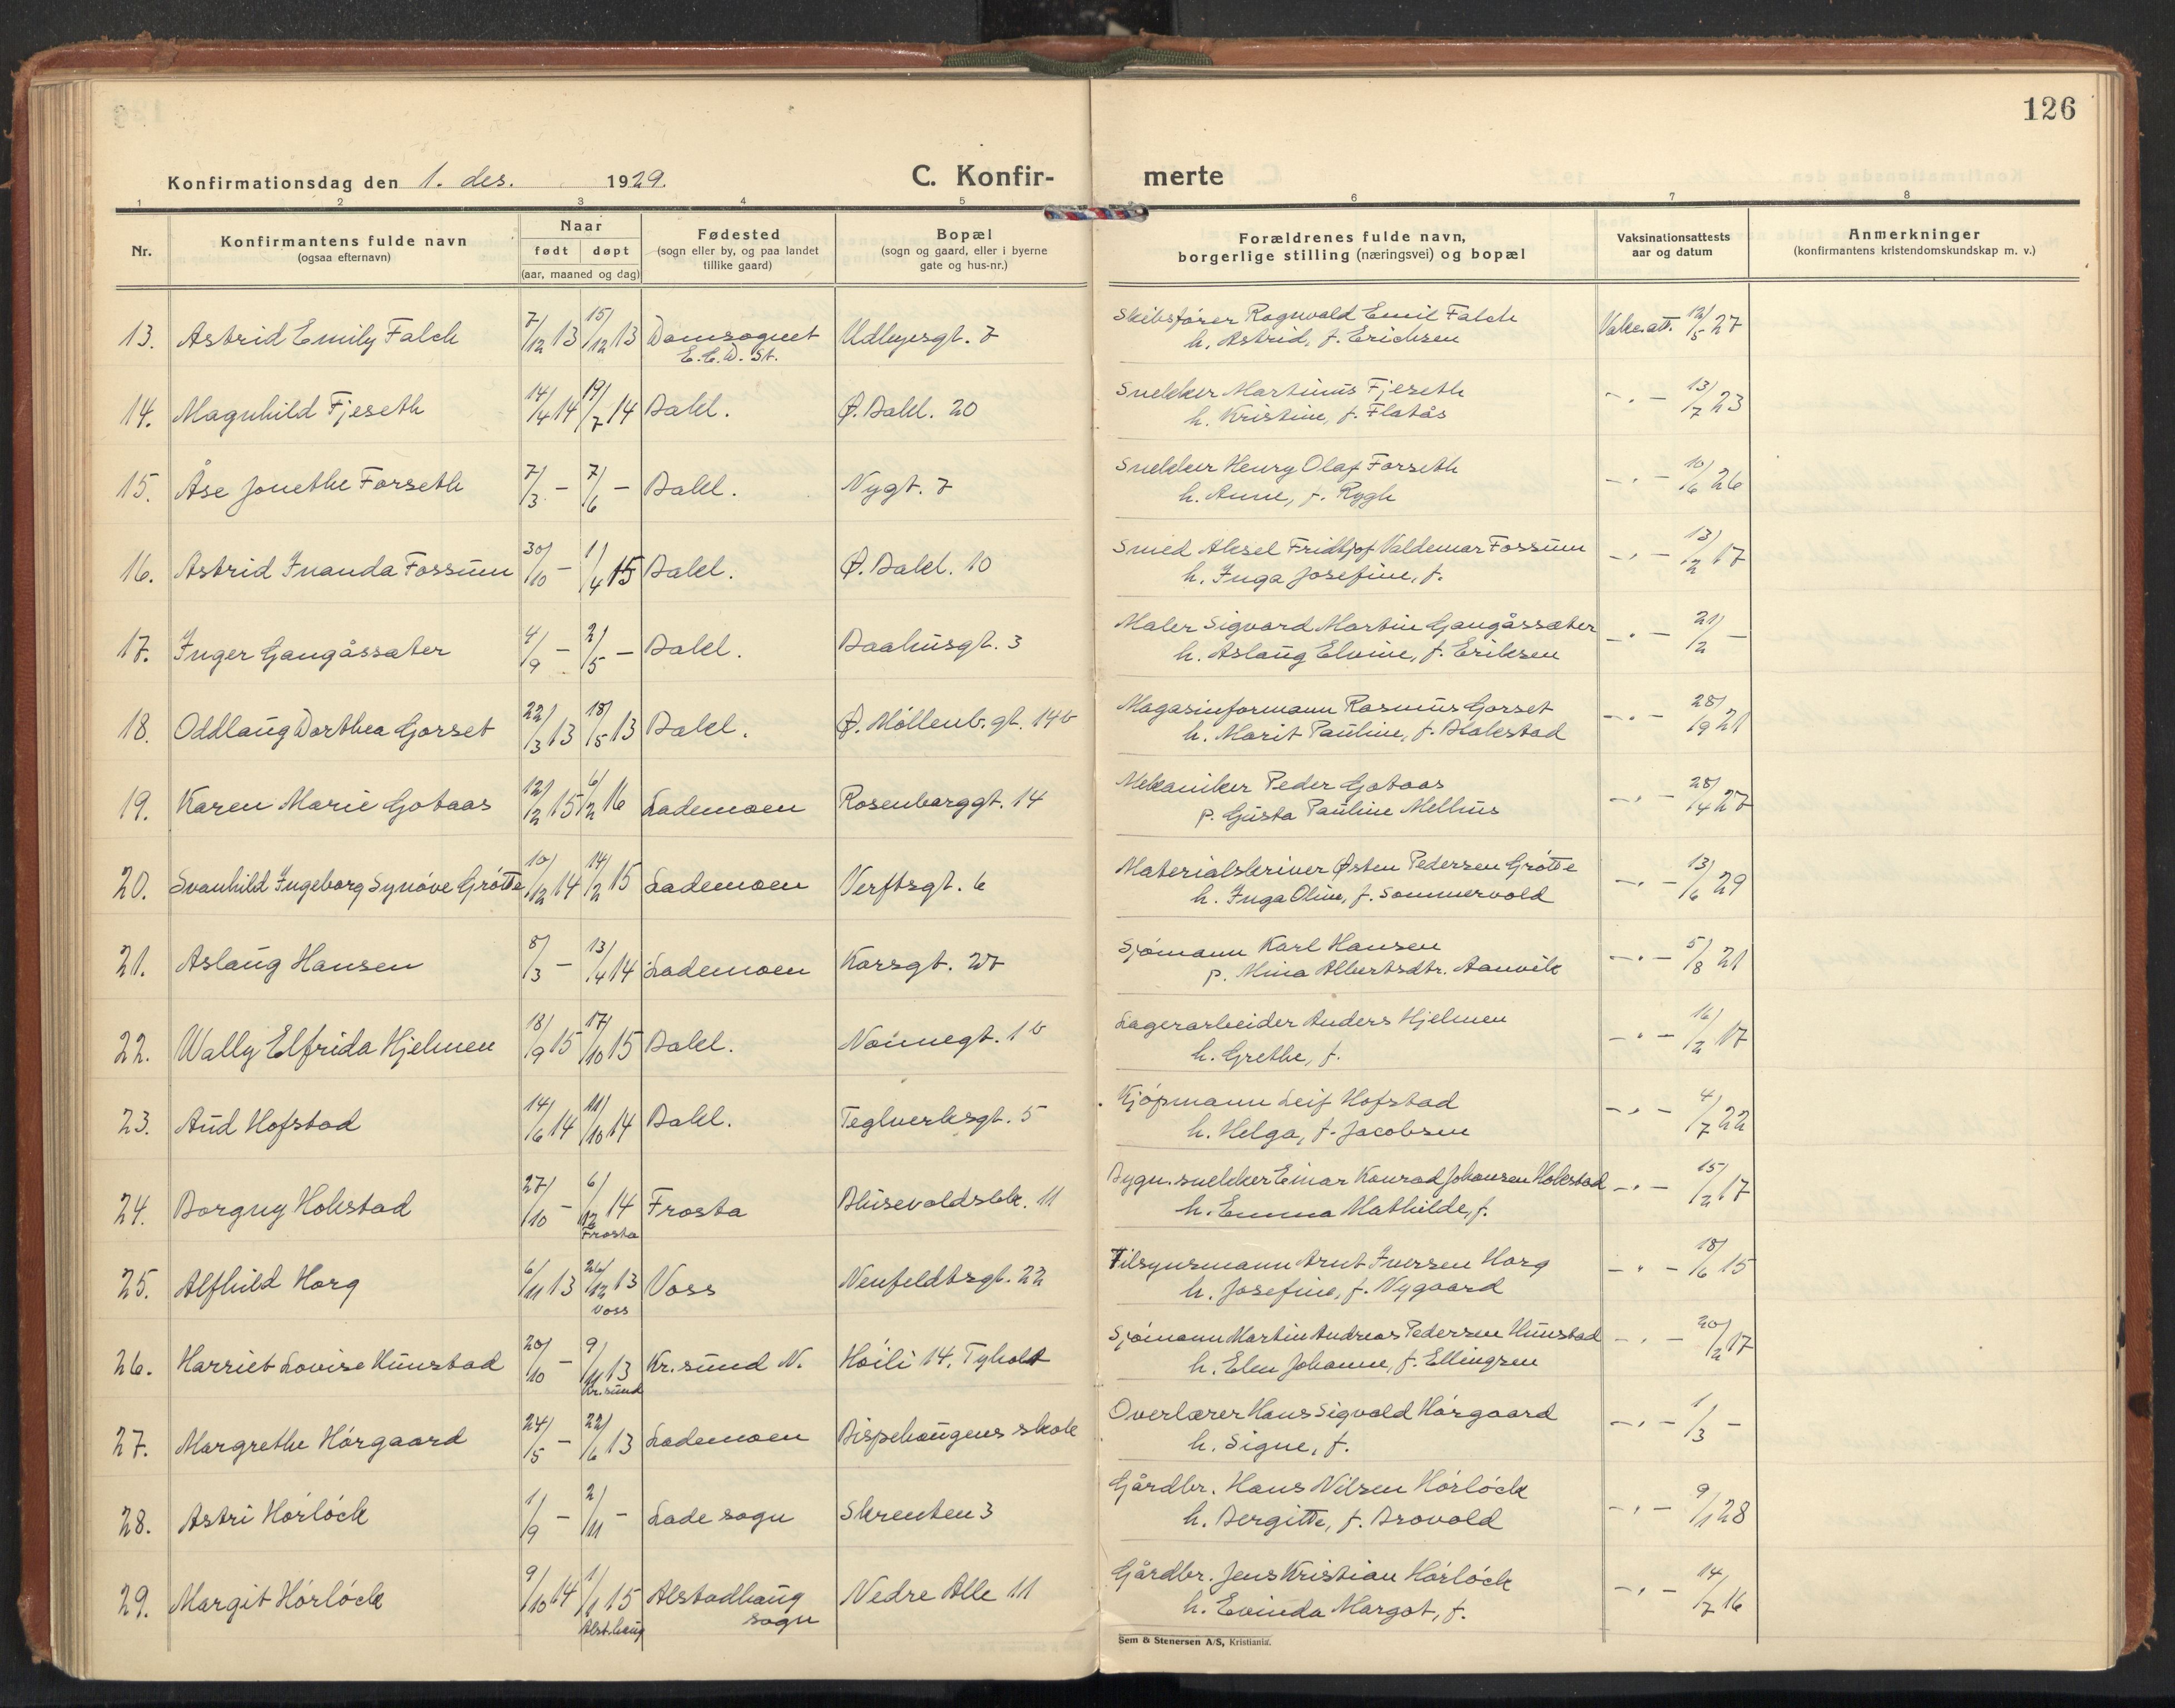 126
Konfirmationsdag den 1. des. 1929. C. Konfir- merte
1 2 3 4 5 6 7 8
Nr. Konfirmantens fulde navn (ogsaa efternavn) Naar født døpt (aar, maaned og dag) Fødested (sogn eller by, og paa landet tillike gaard) Bopæl (sogn og gaard, eller i byerne gate og hus-nr.) Forældrenes fulde navn, borgerlige stilling (næringsvei) og bopæl Vaksinationsattests aar og datum Anmerkninger (konfirmantens kristendomskundskap m. v.)
13. Astrid Emily Falck 7/12 13 15/12 13 Domsognet Udbyesgt. 7 Skibsfører Ragnvald Emil Falck Vaks.att. 12/5 27
E.C.D. St. h. Astrid, f. Erichsen
14. Magnhild Fjeseth 14/4 14 19/7 14 Bakl. Ø. Bakl. 20 Snekker Martinus Fjeseth -"- 13/7 23
h. Kristine, f. Flatås
15. Åse Jonethe Forseth 7/3 - 7/6 - Bakl. Nygt. 7 Snekker Henry Olaf Forseth -"- 10/6 26
h. Anne, f. Rygh
16. Astrid Inanda Fossum 30/10 - 1/4 15 Bakl. Ø. Bakl. 10 Smed Aksel Fridtjof Valdemar Fossum -"- 13/2 17
h. Inga Josefine, f.
17. Inger Gangåssæter 4/9 - 2/5 - Bakl. Baahusgt. 3 Maler Sigvard Martin Gangåssæter -"- 21/2 -
h. Aslaug Elvine, f. Eriksen
18. Oddlaug Dorthea Gorset 22/3 13 18/5 13 Bakl. Ø. Möllenb. gt. 14b Magasinformann Rasmus Gorset -"- 28/9 21
h. Marit Pauline, f. Blakestad
19. Karen Marie Gotaas 12/2 15 6/2 16 Lademoen Rosenborggt. 14 Mekaniker Peder Gotaas -"- 28/4 27
p. Gusta Pauline Melhus
20. Svanhild Ingeborg Synöve Grötte 10/12 14 14/2 15 Lademoen Verftsgt. 6 Materialskriver Østen Pedersen Grötte -"- 13/6 29
h. Inga Oline, f. Sommervold
21. Aslaug Hansen 8/3 - 13/4 14 Lademoen Korsgt. 27 Sjömann Karl Hansen -"- 5/8 21
p. Mina Albertsdtr. Aanvik
22. Wally Elfrida Hjelmen 18/9 15 17/10 15 Bakl. Nonnegt. 1b Lagerarbeider Anders Hjelmen -"- 16/2 17
h. Grethe, f.
23. Aud Hofstad 14/6 14 11/10 14 Bakl. Teglverksgt. 5 Kjöpmann Leif Hofstad -"- 4/7 22
h. Helga, f. Jacobsen
24. Borgny Holestad 27/10 - 6/12 14 Frosta Blusevoldsbk. 11 Bygn.snekker Einar Konrad Johansen Holestad -"- 15/2 17
Frosta h. Emma Mathilde, f.
25. Alfhild Horg 6/11 13 26/12 13 Voss Neufeldtsgt. 22 Tilsynsmann Arnt Iversen Horg -"- 18/6 15
Voss h. Josefine, f. Nygaard
26. Harriet Lovise Hunstad 20/10 - 9/11 13 Kr.sund N. Höili 14, Tyholt Sjömann Martin Andreas Pedersen Hunstad -"- 20/2 17
Kr.sund h. Elen Johanne, f. Ellingsen
27. Margrethe Hörgaard 24/5 - 22/6 13 Lademoen Bispehaugens skole Overlærer Hans Sigvald Hörgaard -"- 1/3 -
h. Signe, f.
28. Astri Hörlöck 1/9 - 2/11 - Lade sogn Skrenten 3 Gårdbr. Hans Nilsen Hörlöck -"- 9/1 28
h. Bergitte, f. Brovold
29. Margit Hörlöck 9/10 14 1/1 15 Alstadhaug sogn Nedre Alle 11 Gårdbr. Jens Kristian Hörlöck -"- 14/7 16
Alst.haug h. Evinda Margot, f.
Sem & Stenersen A/S, Kristiania.